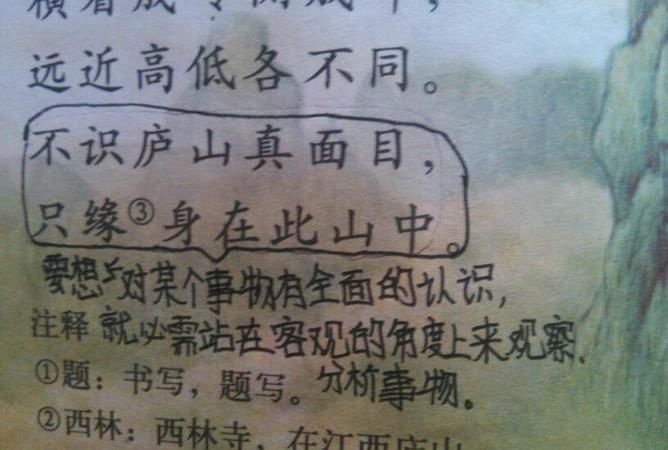 横看成岭侧成峰，
远近高低各不同。
不识庐山真面目，
只缘③身在此山中。
要想对某个事物有全面的认识，
注释 就必需站在客观的角度上来观察.
①题：书写，题写。分析事物。
②西林：西林寺，在江西庐山